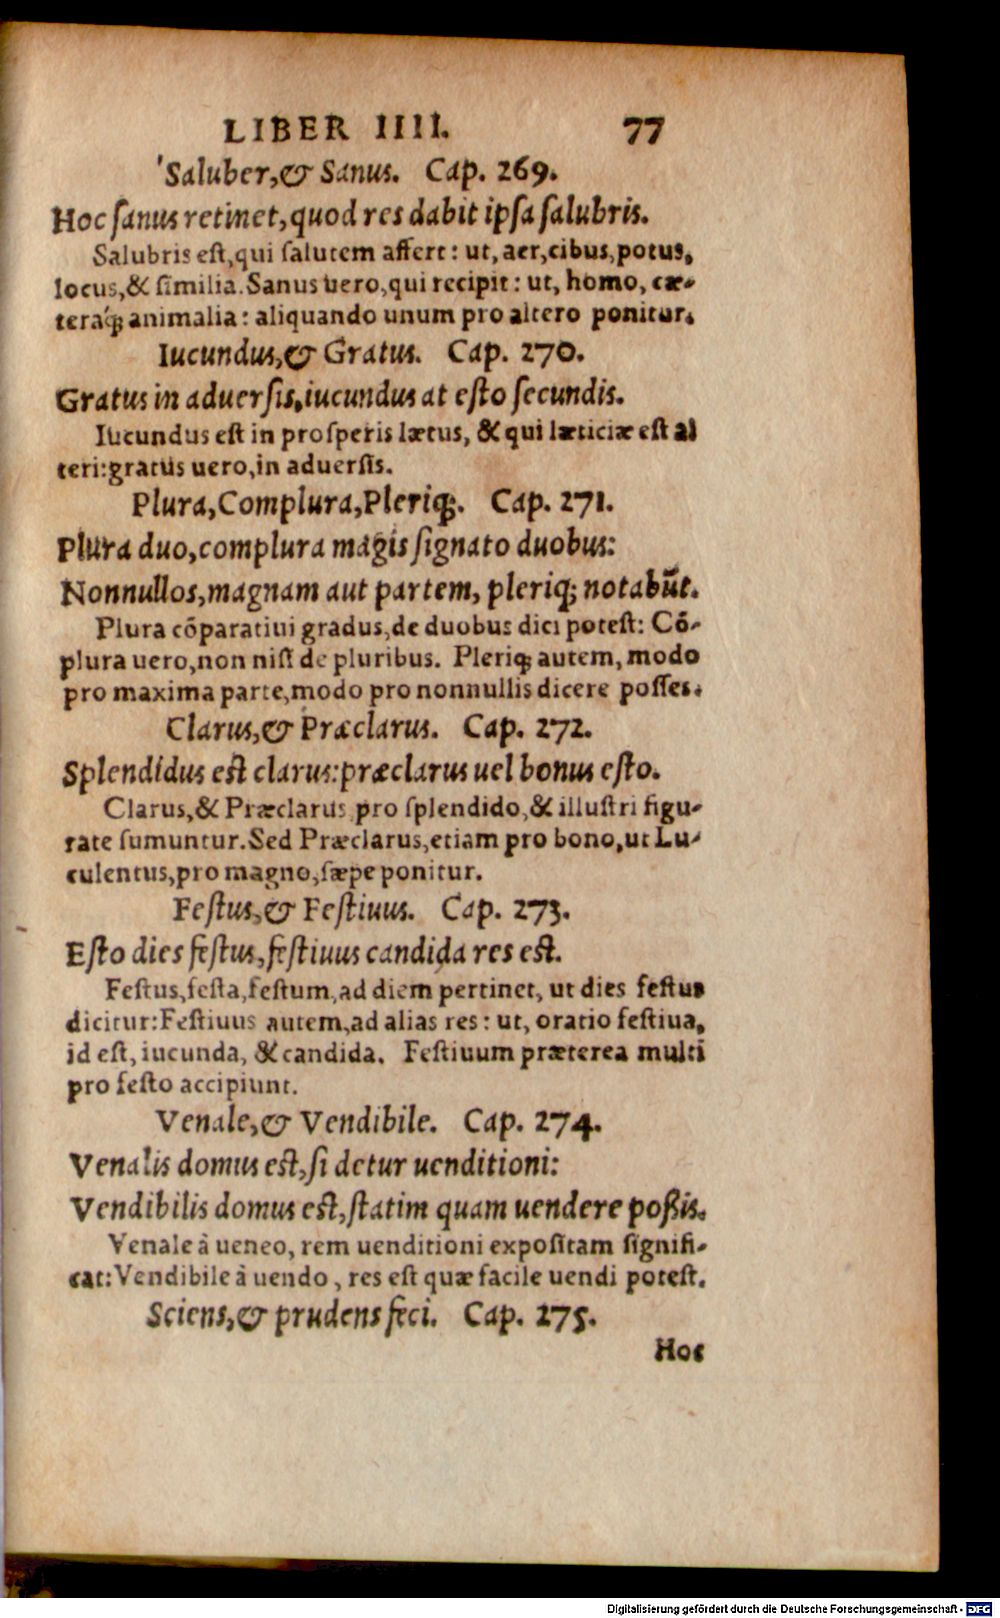 LIBER IIII. 77
Saluber,& Sanus. Cap. 269.
Hoc ſanus retinet,quod res dabit ipſa ſalubris.
Salubris eſt,qui ſalutem affert: ut, aer,cibus,potus,
locus,& ſimilia.Sanus uero,qui recipit: ut, homo, cæ-
teraq́; animalia: aliquando unum pro altero ponitur.
Iucundus,& Gratus. Cap. 270.
Gratus in aduerſis,iucundus at eſto ſecundis.
Iucundus eſt in proſperis lætus, & qui læticiæ eſt al
teri:gratus uero,in aduerſis.
Plura,Complura,Pleriq;. Cap. 271.
Plura duo,complura magis ſignato duobus:
Nonnullos,magnam aut partem, pleriq; notabūt.
Plura cōparatiui gradus,de duobus dici poteſt: Cō-
plura uero,non niſi de pluribus. Pleriq; autem, modo
pro maxima parte,modo pro nonnullis dicere poſſes.
Clarus,& Præclarus. Cap. 272.
Splendidus eſt clarus:præclarus uel bonus eſto.
Clarus,& Præclarus pro ſplendido,& illuſtri figu-
rate ſumuntur.Sed Præclarus,etiam pro bono,ut Lu-
culentus,pro magno,ſæpe ponitur.
Feſtus,& Feſtiuus. Cap. 273.
Eſto dies feſtus,feſtiuus candida res eſt.
Feſtus,feſta,feſtum,ad diem pertinet, ut dies feſtus
dicitur:Feſtiuus autem,ad alias res: ut, oratio feſtiua,
id eſt, iucunda, & candida. Feſtiuum præterea multi
pro feſto accipiunt.
Venale,& Vendibile. Cap. 274.
Venalis domus eſt,ſi detur uenditioni:
Vendibilis domus eſt,ſtatim quam uendere poßis.
Venale à ueneo, rem uenditioni expoſitam ſignifi-
cat:Vendibile à uendo, res eſt quæ facile uendi poteſt.
Sciens,& prudens feci. Cap. 275.
Hoc
Digitalisierung gefördert durch die Deutsche Forschungsgemeinschaft - DFG